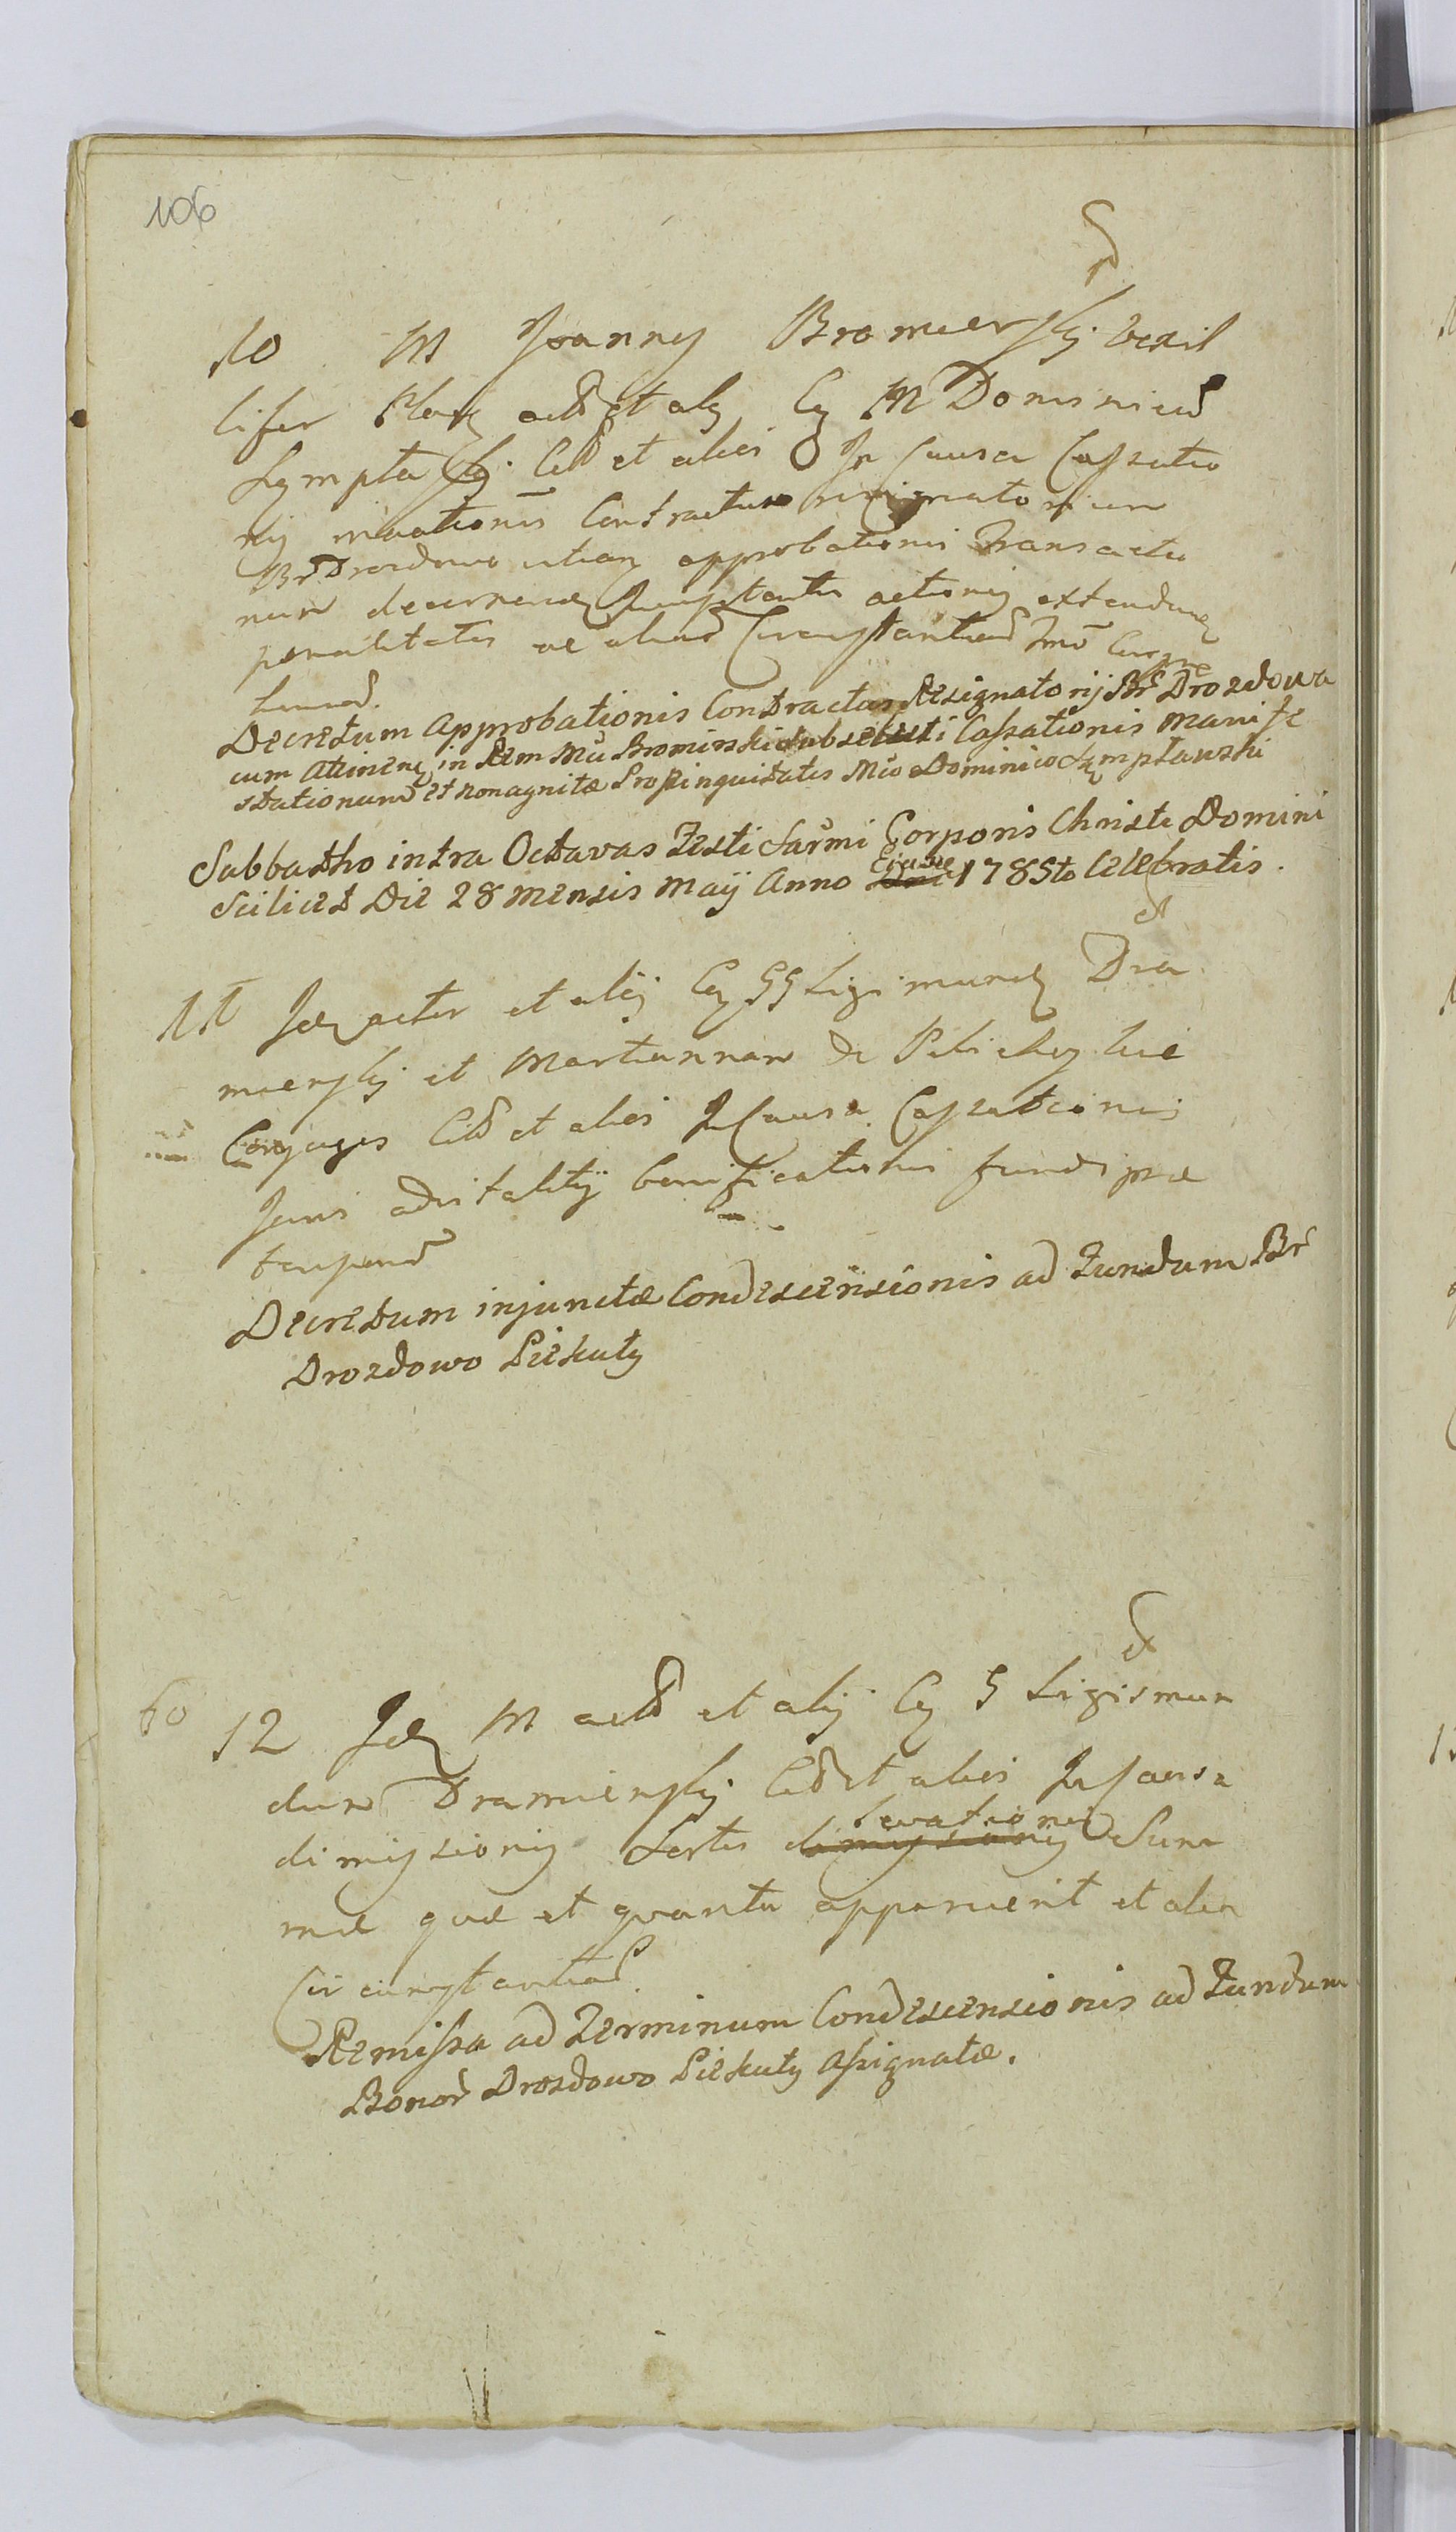 106
10 M Joannes Bromierskj Vexil
lifer Ploc act et alij Cu M Dominicu
Lemptaskj Citt et alios In Causa Cassatio
nis Contractus resignatorium
Br Drozdowo approbationis Transactio
num decernend actionis extendend
penalitatis ac alias Circumstantias
Decretum Approbationis Contractus Resignatorij Br Drozdowa
cum Attinen in Rem Mci Bromirski subsecuti Cassationis Manife
stationum et non agnitæ Propinquitatis Mco Dominico Łempławski
Sabbatho intra Octavas Festi Ssrmi Corporis Christi Domini
Scilicet Die 28 Mensis Maij Anno Dni Ejusde 1785to Celebratis.
et
11 Idem actor et alij Cu GG Zigimund Dra
mierskj et Martiannam de Conjuges Citt et alios In Causa Cassationis
Juris advitalitij bonificationis fundi præ
Decretum injunctæ Condescensionis ad Fundum Br
Drozdowo Piekuty
et
60
12 Idem M act et alij Cu G Zigismun
dum Dramierskj Citt et alios In Causa
levationis
dimissionis Sortis dimissionis Sum
mæ quæ et quanta apparuerit et alia
Circumstantias
Remissa ad Terminum Condescensionis ad Fundum
Bonor Drozdowo Piekuty Assignatæ.